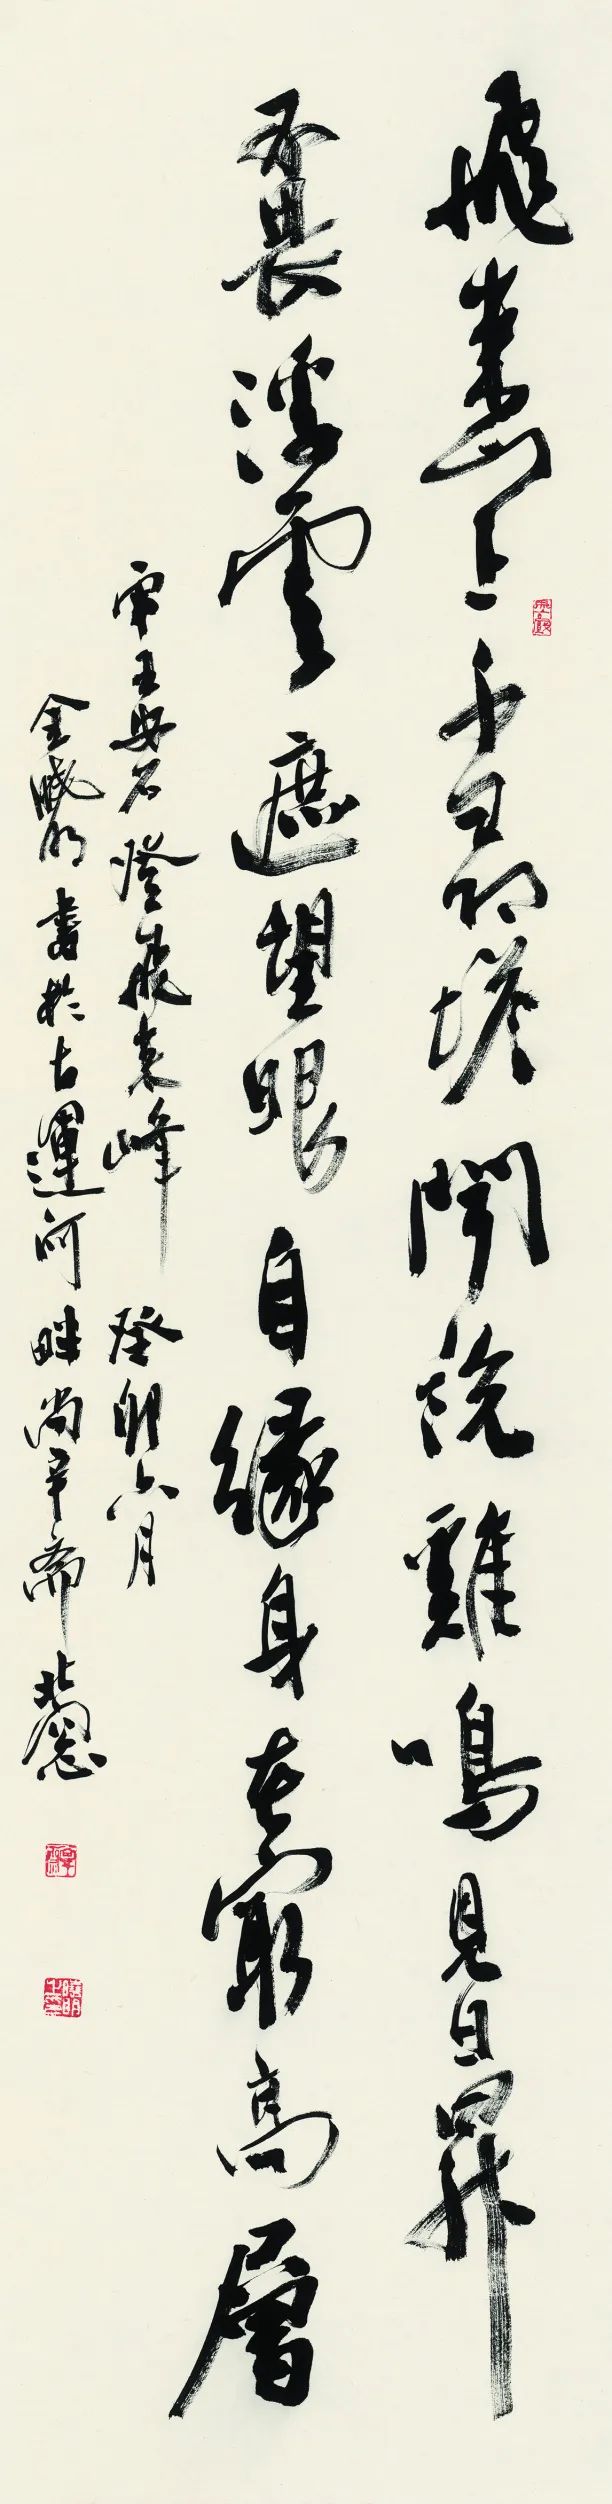 飛来山上千尋塔聞説雞鳴見日昇
不畏浮雲遮望眼自緣身在最高層
宋王安石登飛来峰 癸卯六月
金曉明書於古運河畔尚辛齋北窗